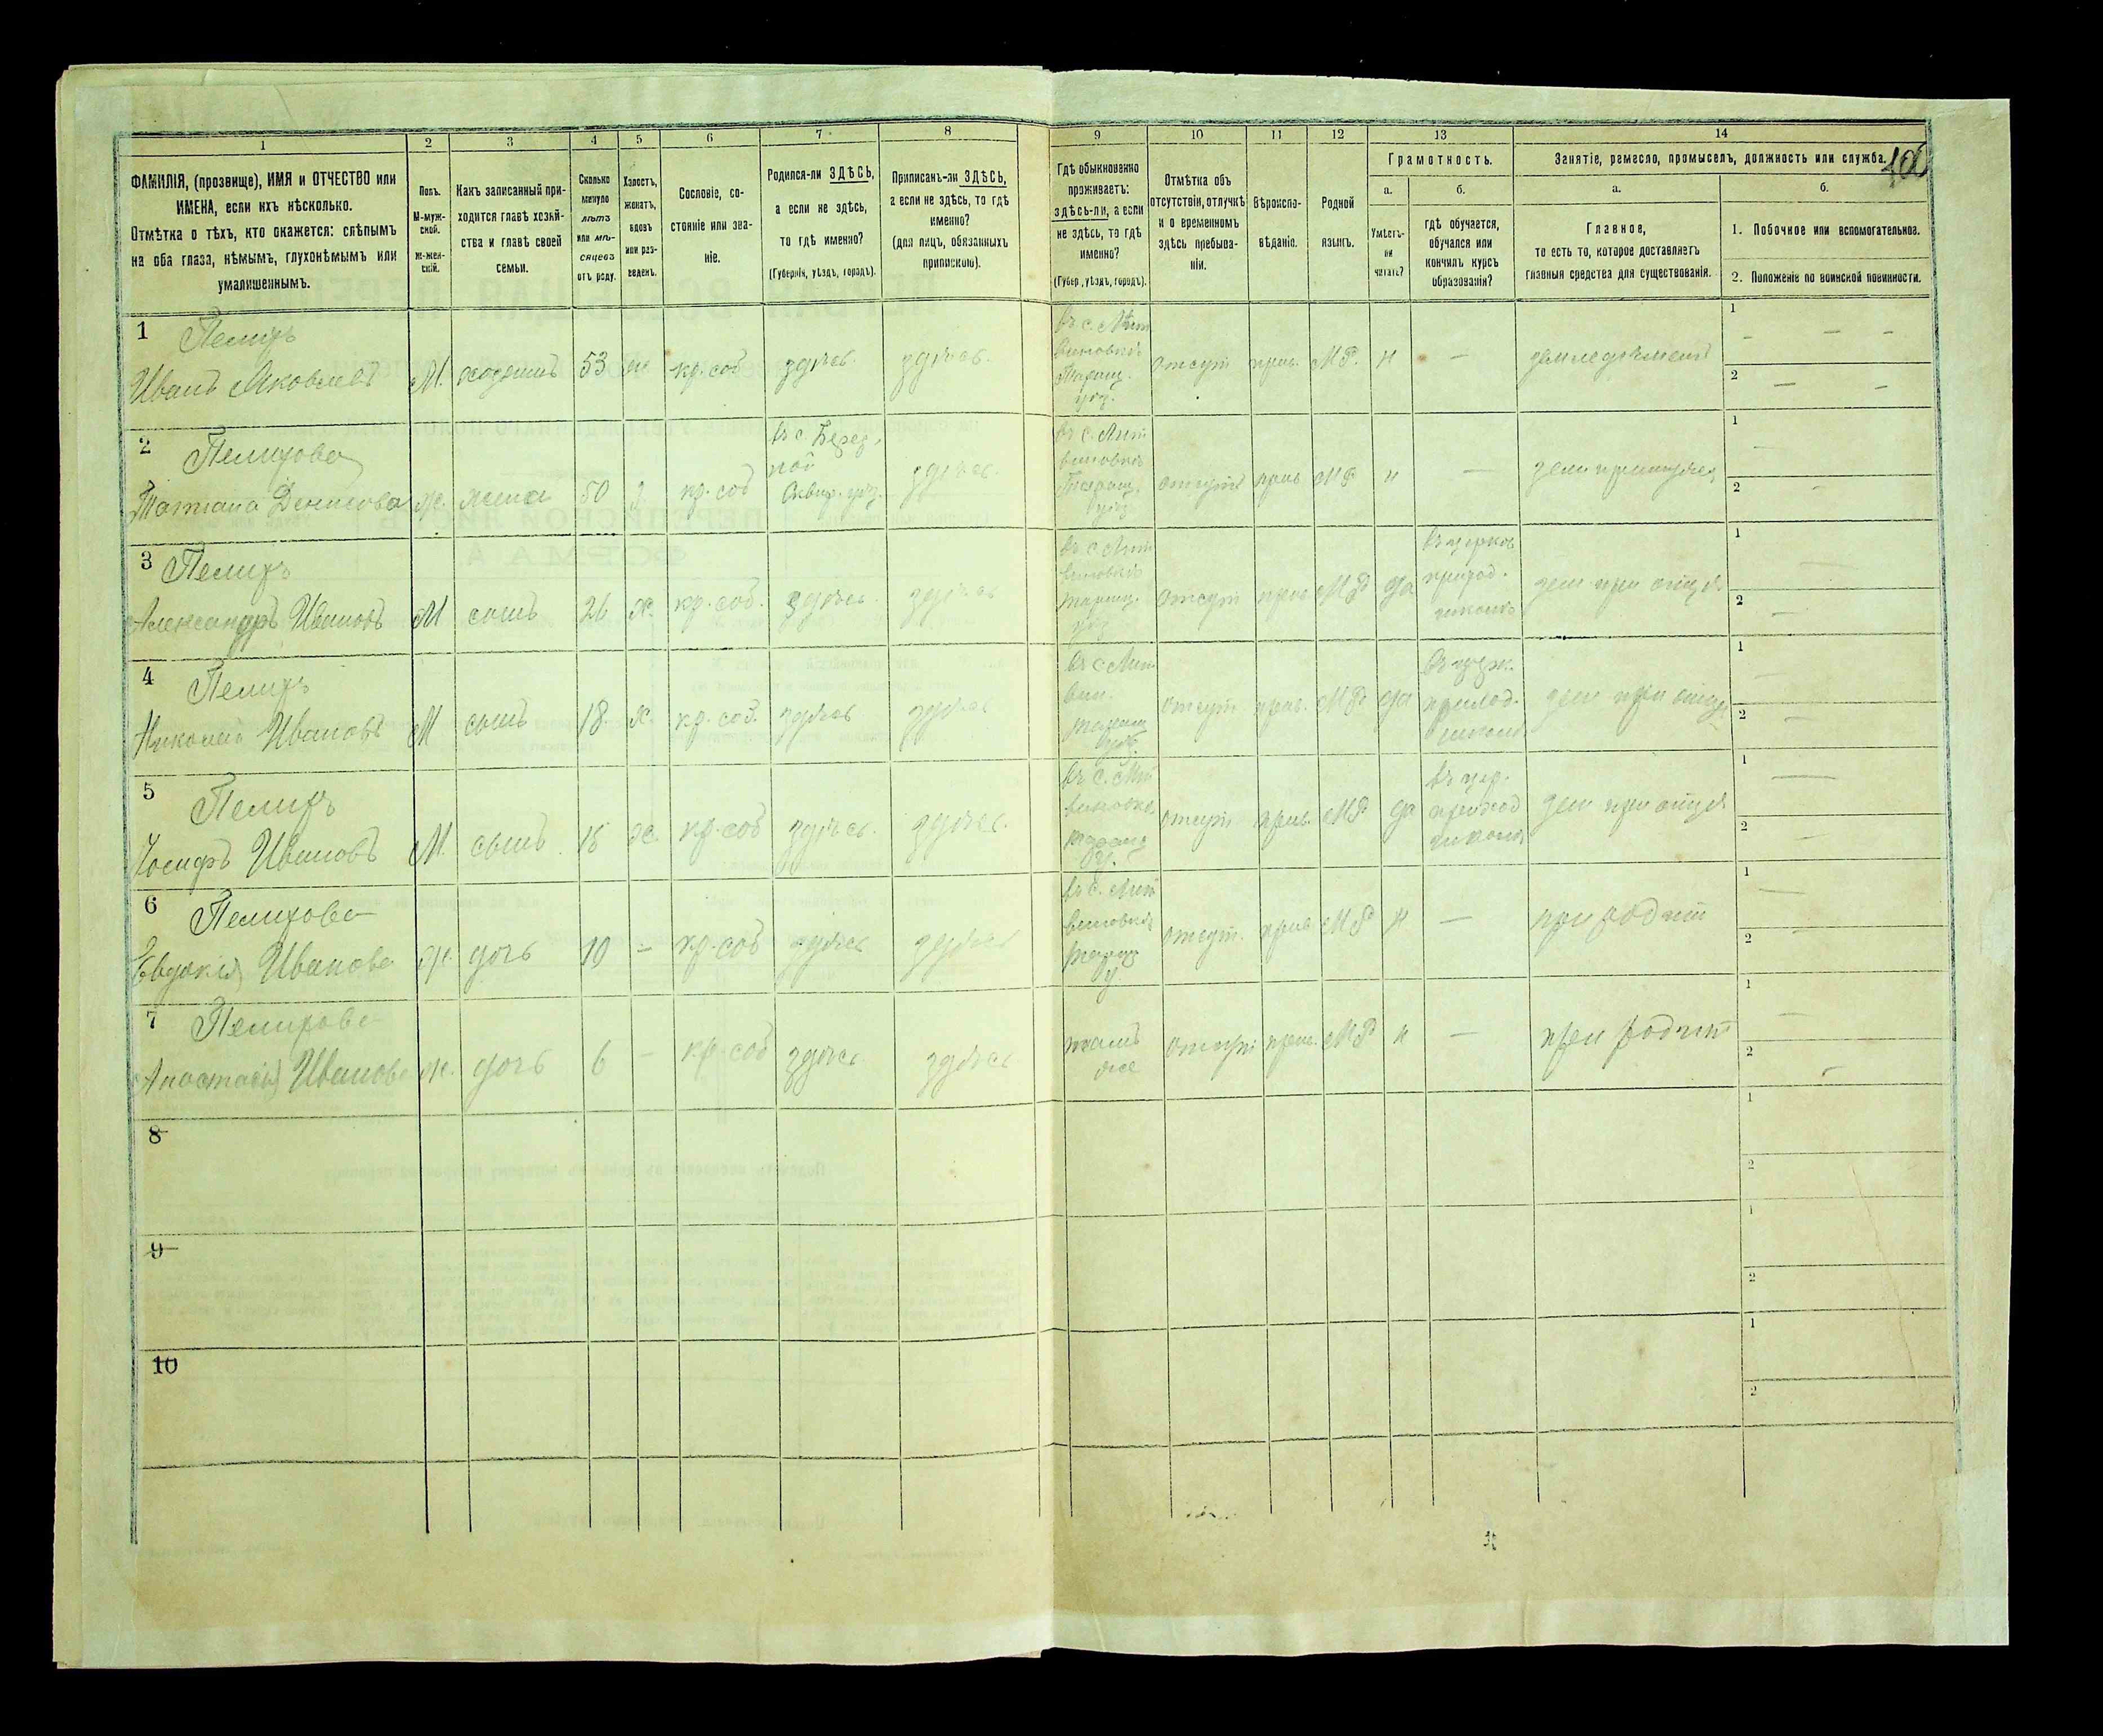 1
2
3
4
5
6
7
8
9
10
11
12
13
14
ФАМИЛІЯ, (прозвище), ИМЯ и ОТЧЕСТВО или
ИМЕНА, если ихъ нѣсколько.
Отмѣтка о тѣхъ, кто окажется: слѣпымъ
на оба глаза, нѣмымъ, глухонѣмымъ или
умалишеннымъ.
Полъ.
М-муж-
ской.
Ж-жен-
скій.
Какъ записанный при-
ходится главѣ хозяй-
ства и главѣ своей
семьи.
Сколько
минуло
лѣтъ
или мѣ-
сяцевъ
отъ роду.
Холостъ,
женатъ,
вдовъ
или раз-
веденъ.
Сословіе, со-
стояніе или зва-
ніе.
Родился-ли ЗДѢСЬ,
а если не здѣсь,
то гдѣ именно?
(Губернія, уѣздъ, городъ).
Приписанъ-ли ЗДѢСЬ,
а если не здѣсь, то гдѣ
именно?
(для лицъ, обязанныхъ
припискою).
Гдѣ обыкновенно
проживаетъ:
здѣсь-ли, а если
не здѣсь, то гдѣ
именно?
(Губер., уѣздъ, городъ).
Отмѣтка объ
отсутствіи, отлучкѣ
и о временномъ
здѣсь пребыва-
ніи.
Вѣроиспо-
вѣданіе.
Родной
языкъ.
Грамотность.
а.
Умѣетъ-
ли
читать?
б.
гдѣ обучается,
обучался или
кончилъ курсъ
образованія?
Занятіе, ремесло, промыселъ, должность или служба.
а.
Главное,
то есть то, которое доставляетъ
главныя средства для существованія.
б.
1. Побочное или вспомогательное.
2. Положеніе по воинской повинности.
1
Пелихъ
Иванъ Яковлевъ М. хозяинъ 53 ж кр. соб здѣсь здѣсь.
въ с. Лит
виновкѣ
Таращ.
уѣз.
отсут прав. МР. н — земледѣлецъ
1 —
2 —
2
Пелихова
Татіана Денисова ж. жена 50 з кр. соб
въ с. Берез.
ной
Сквир. уѣз.
здѣсь.
въ с. Лит
виновкѣ
Таращ.
уѣз
отсутъ прав МР н —
1 —
2 —
3
Пелихъ
Александръ Ивановъ М сынъ 26 х. кр. соб. здѣсь. здѣсь
въ с Лит
виновкѣ
таращ.
уѣз
отсут прав МР да
въ церков
приход.
школѣ
зем при отцѣ
1 —
2 —
4
Пелихъ
Николай Ивановъ М сынъ 18. х. кр. соб. здѣсь здѣсь
въ с Лит
вин.
таращ
уѣз.
отсут. прав. МР да
приход.
школѣ
зем при отцѣ
1 —
2 —
5
Пелихъ
Іосифъ Ивановъ М. сынъ 15 х. кр. соб здѣсь. здѣсь.
въ с. Лит
виновке
таращ
у.
отсут прав. МР да
въ цер.
приход
школѣ
зем при отцѣ
1 —
2 —
6
Пелихова
Евдокія Иванова ж. дочь 10 - кр. соб здѣсь здѣсь
въ с. Лит
виновкѣ
таращ
у.
отсут. прав МР н — при родит
1 —
2 —
7
Пелихова
Анастасія Иванова ж. дочь 6 - кр. соб здѣсь здѣсь
тамъ
же
отсут прав. МР н — при родит
1 —
2 —
8
1
2
9
1
2
10
1
2